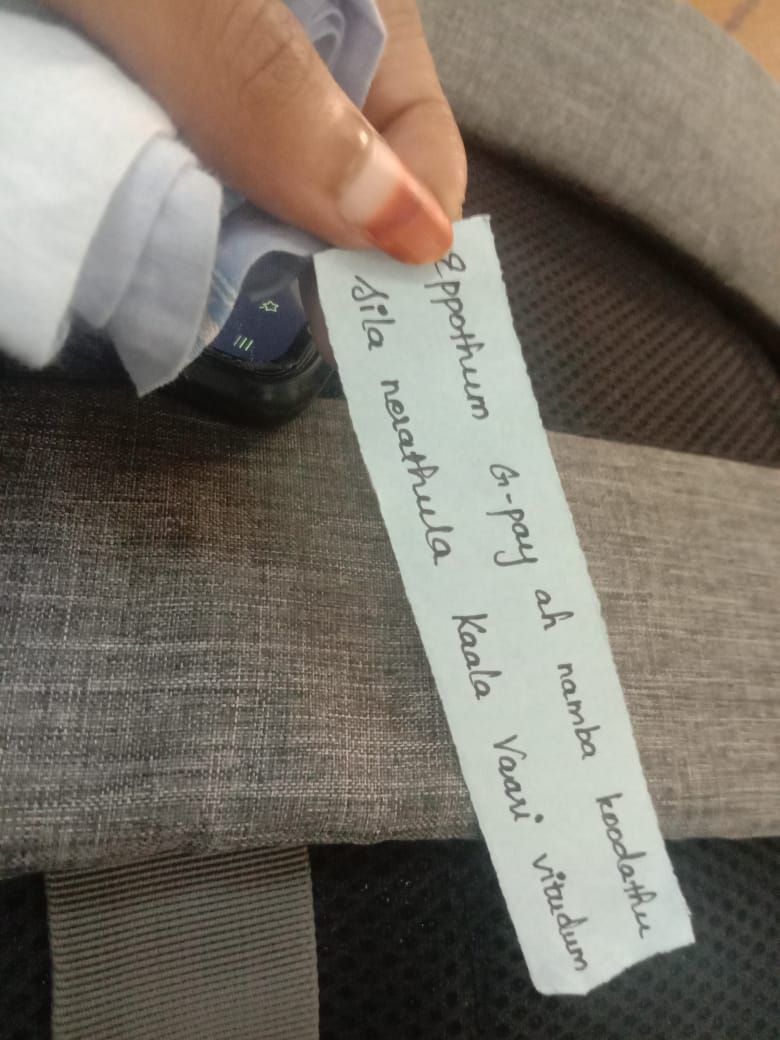 Eppothum G-pay ah namba koodathu
Sila nerathula Kaala Vaari vitudum